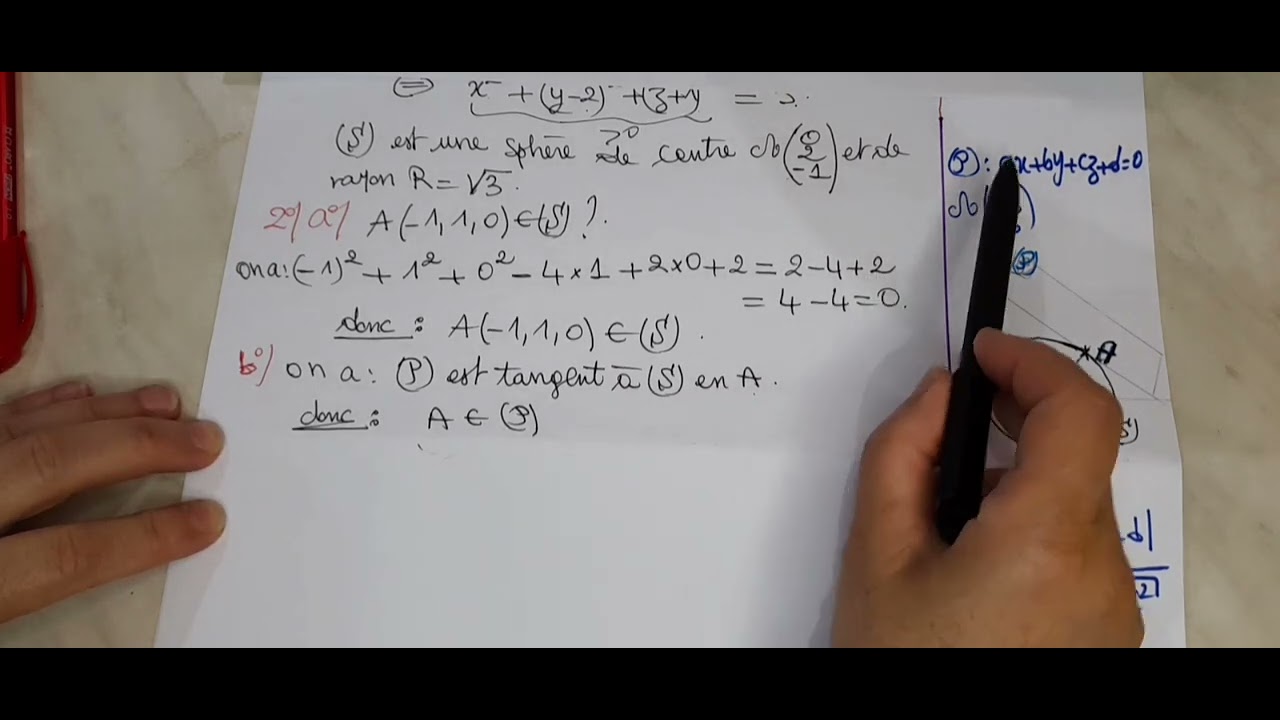 ⇔ x² + (y-2)² + (z+1)² = 3.
(S) est une sphère de centre Ω(0 2 -1) et de
rayon R = √3.
2°/ a°/ A(-1, 1, 0) ∈ (S) ?
on a : (-1)² + 1² + 0² - 4×1 + 2×0 + 2 = 2 - 4 + 2
= 4 - 4 = 0.
donc : A(-1, 1, 0) ∈ (S) .
b°/ on a : (P) est tangent à (S) en A .
donc : A ∈ (P)
(P) : ax+by+cz+d=0
(P)
A